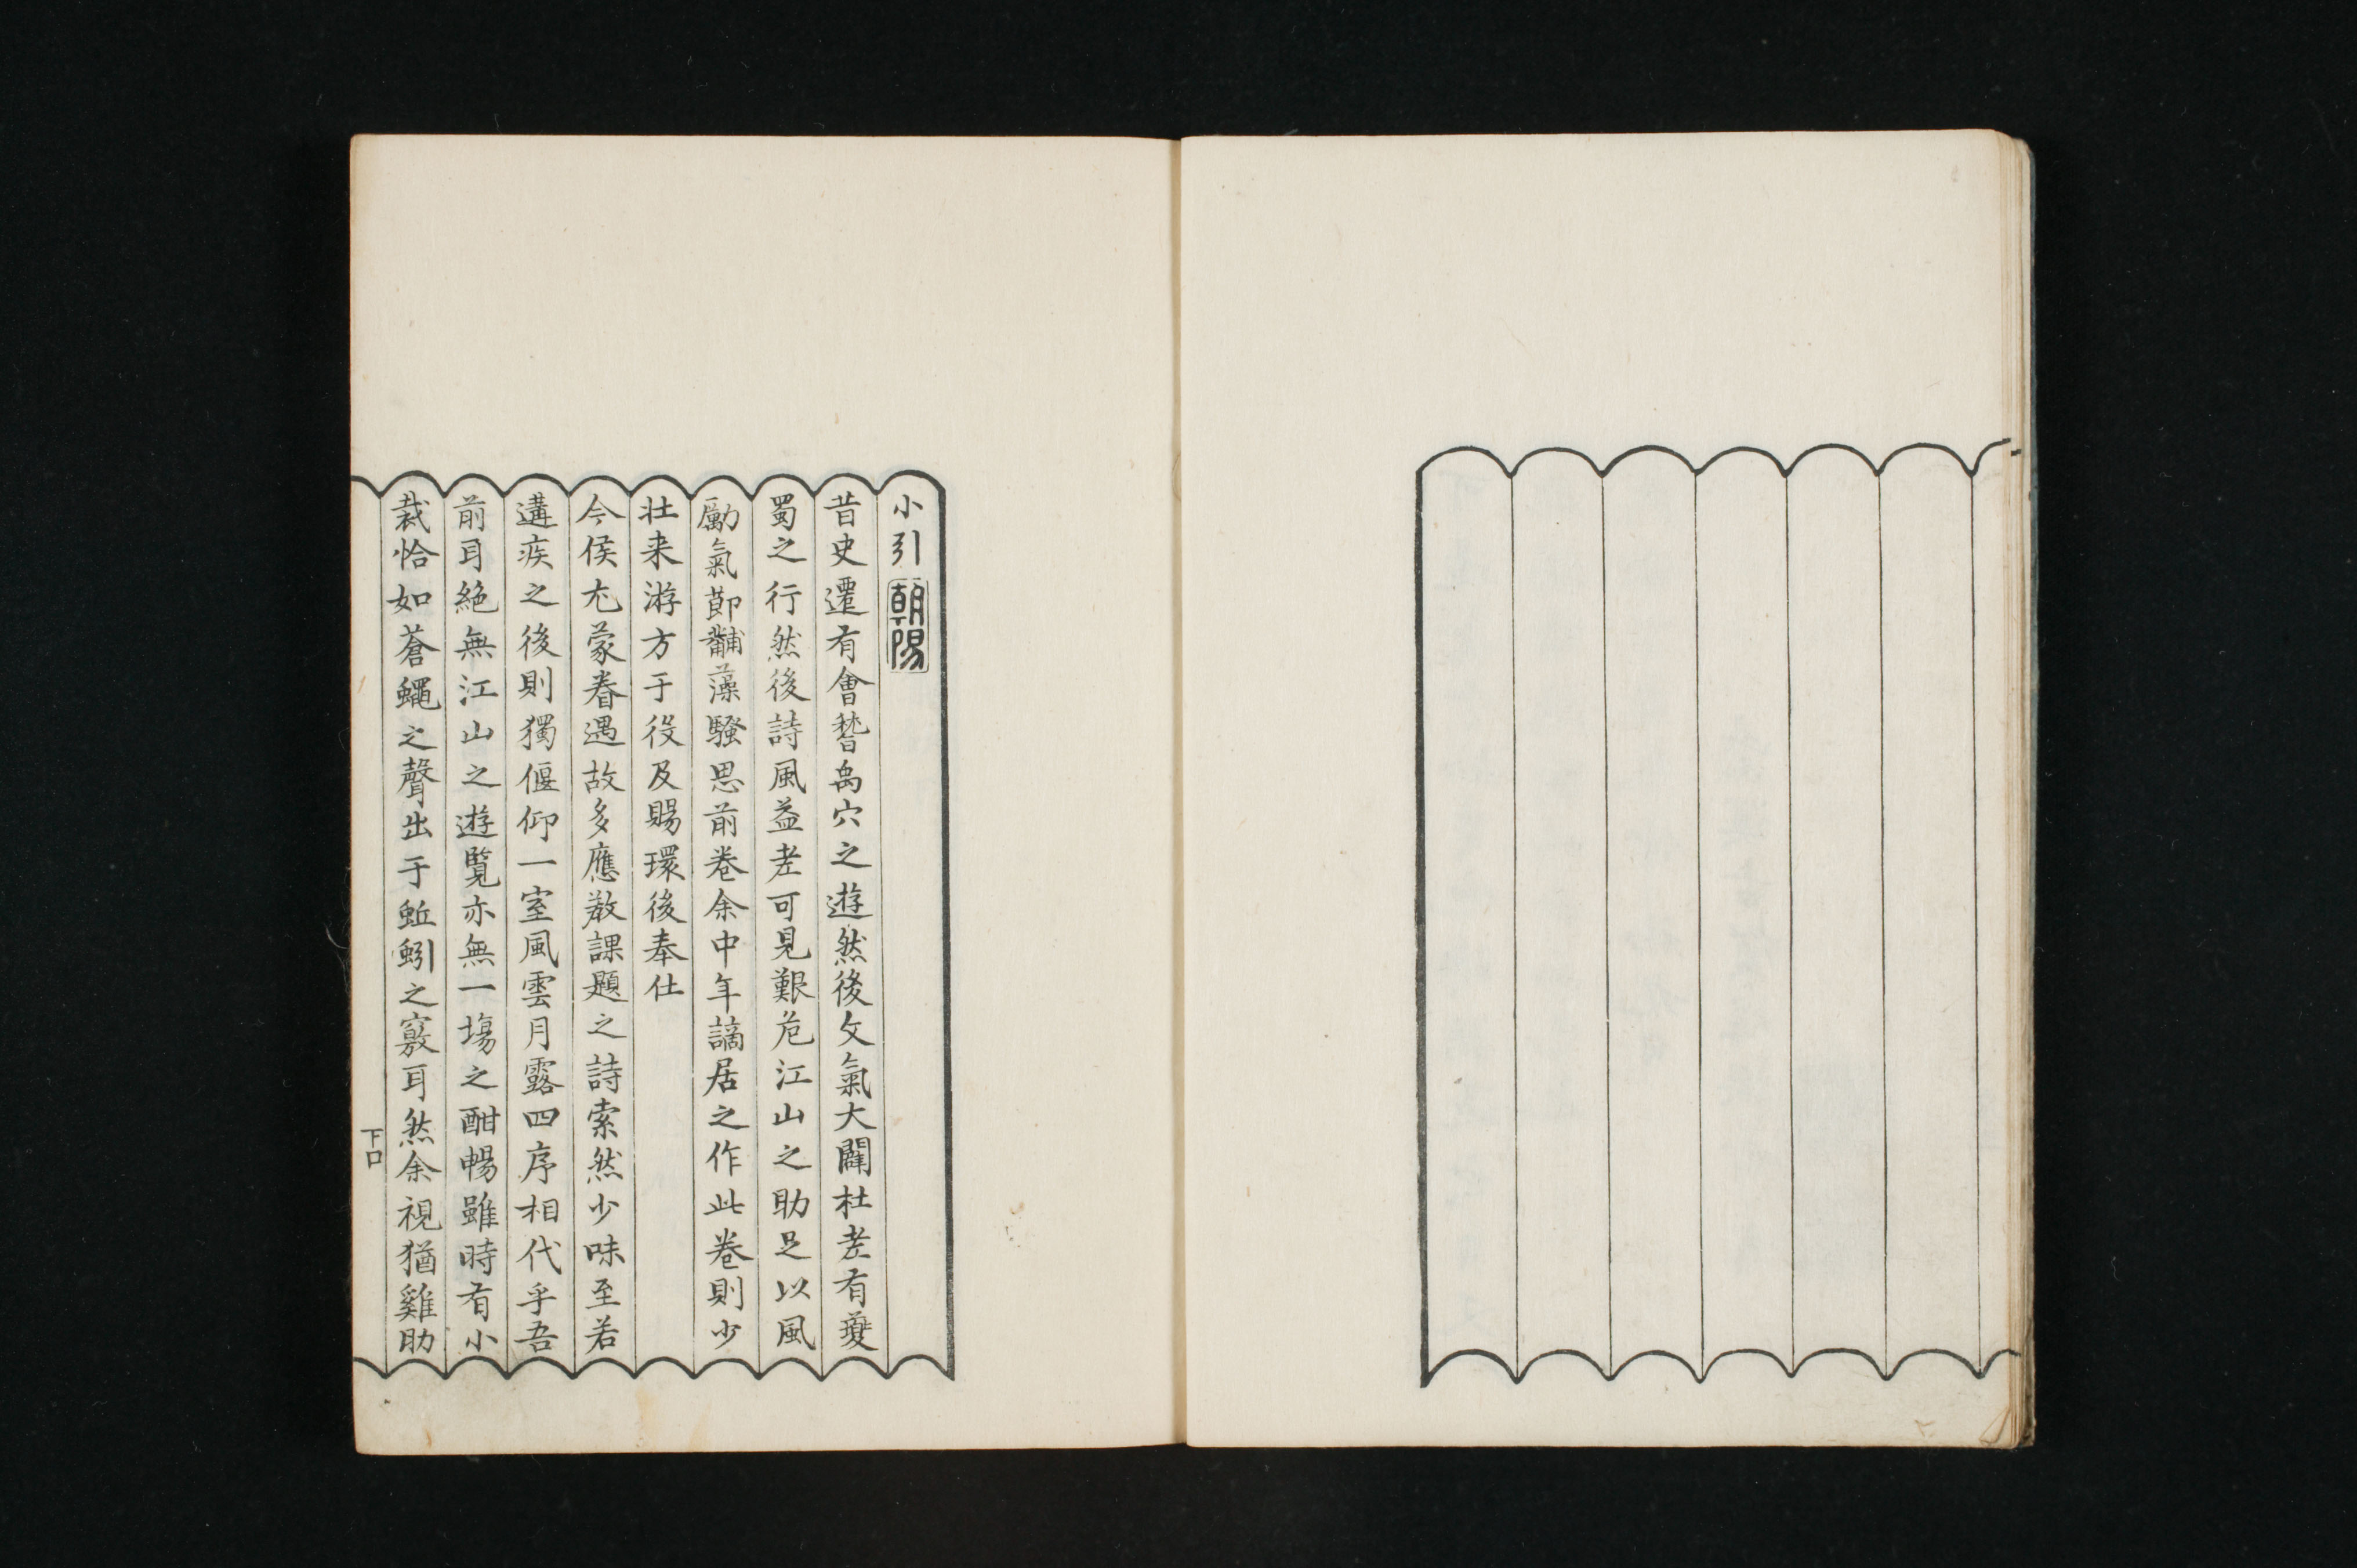 小引 朝陽
昔史遷有會嵆禹穴之遊然後文氣大闢杜老有夔
蜀之行然後詩風益老可見艱危江山之助足以風
勵氣節黼藻騷思前卷余中年謫居之作此卷則少
壮来游方于役及賜環後奉仕
今侯尤蒙眷遇故多應教課題之詩索然少味至若
遘疾之後則獨偃仰一室風雲月露四序相代乎吾
前耳絶無江山之遊覧亦無一塲之酣暢雖時有小
裁恰如蒼蠅之聲出于蚯蚓之竅耳然余視猶雞肋
下口